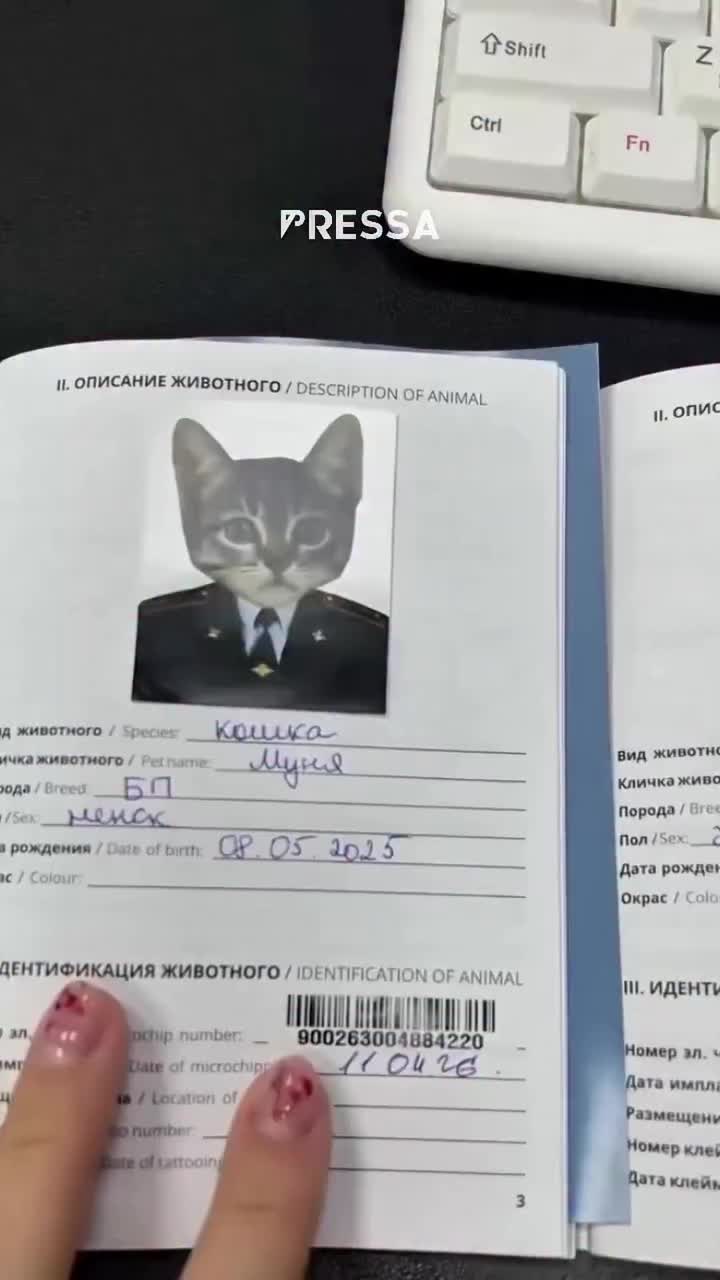 Shift
Z
Ctrl
Fn
PRESSA
II. ОПИСАНИЕ ЖИВОТНОГО / DESCRIPTION OF ANIMAL
д животного / Species: кошка
ичка животного / Pet name: Муня
ода / Breed: БП
/ Sex: женск
а рождения / Date of birth: 08.05.2025
ас / Colour:
ДЕНТИФИКАЦИЯ ЖИВОТНОГО / IDENTIFICATION OF ANIMAL
р эл. ochip number:
900263004884220
Date of microchipp 11 04 26
а / Location of
oo number:
Date of tattooing
3
II. ОПИС
Вид животно
Кличка живо
Порода / Bree
Пол / Sex:
Дата рожден
Окрас / Colo
III. ИДЕНТИ
Номер эл. ч
Дата импла
Размещени
Номер клей
Дата клейм